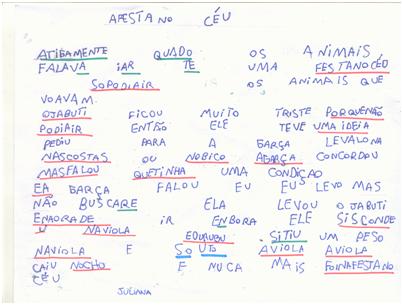 APESTA NO CÉU
ATIGAMENTE QUADO OS ANIMAIS
FALAVA IAR TE UMA FESTANOCÉU
SOPODIAIR OS ANIMAIS QUE
VOAVAM.
OJABUTI FICOU MUITO TRISTE PORQUENÃO
PODIAIR ENTÃO ELE TEVE UMAIDEIA
PEDIU PARA A GARÇA LEVALONA
NASCOSTAS OU NOBICO AGARÇA CONCORDOU
MASFALOU QUETINHA UMA CONDIÇÃO
EA GARÇA FALOU EU EUS LEVO MAS
NÃO BUSCARE ELA LEVOU OJABUTI
ENAORADE IR ENBORA ELE SISCONDE
U NAVIOLA EOURUBU SITIU UM PESO
NAVIOLA E SOUTO AVIOLA AVIOLA
CAIU NOCHO E NUCA MAIS FOINAFESTANO
CÉU
JULIANA